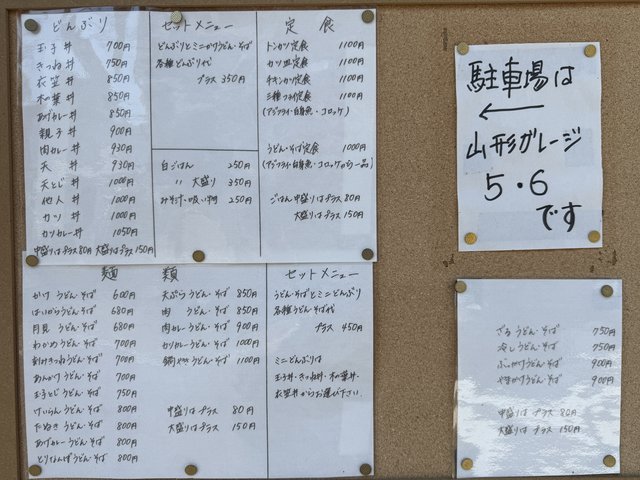 どんぶり
玉子丼 700円
きつね丼 750円
衣笠丼 850円
木の葉丼 850円
あげカレー丼 850円
親子丼 900円
肉カレー丼 930円
天丼 930円
天とじ丼 1000円
他人丼 1000円
カツ丼 1000円
カツカレー丼 1050円
中盛りはプラス80円 大盛りはプラス150円
セットメニュー
どんぶりとミニかけうどん・そば
各種どんぶり代
プラス 350円
白ごはん 250円
〃 大盛り 350円
みそ汁・吸い物 250円
定食
トンカツ定食 1100円
カツ皿定食 1100円
チキンカツ定食 1100円
三種フライ定食 1100円
(アジフライ・白身魚・コロッケ)
うどん・そば定食 1000円
(アジフライ・白身魚・コロッケから一品)
ごはん 中盛りはプラス80円
大盛りはプラス150円
麺類
かけ うどん・そば 600円
はいからうどん・そば 680円
月見 うどん・そば 680円
わかめうどん・そば 700円
刻みきつねうどん・そば 700円
あんかけうどん・そば 700円
玉子とじうどん・そば 750円
けいらんうどん・そば 800円
たぬき うどん・そば 800円
あげカレーうどん・そば 800円
とりなんばうどん・そば 800円
天ぷらうどん・そば 850円
肉 うどん・そば 850円
肉カレーうどん・そば 900円
カツカレーうどん・そば 1000円
鍋やきうどん・そば 1100円
中盛りはプラス 80円
大盛りはプラス 150円
セットメニュー
うどん・そばとミニどんぶり
各種うどん・そば代
プラス 450円
ミニどんぶりは
玉子丼・きつね丼・木の葉丼・
衣笠丼からお選び下さい.
駐車場は
←
山形ガレージ
5・6
です
ざるうどん・そば 750円
冷しうどん・そば 750円
ぶっかけうどん・そば 900円
やまかけうどん・そば 900円
中盛りはプラス 80円
大盛りはプラス 150円